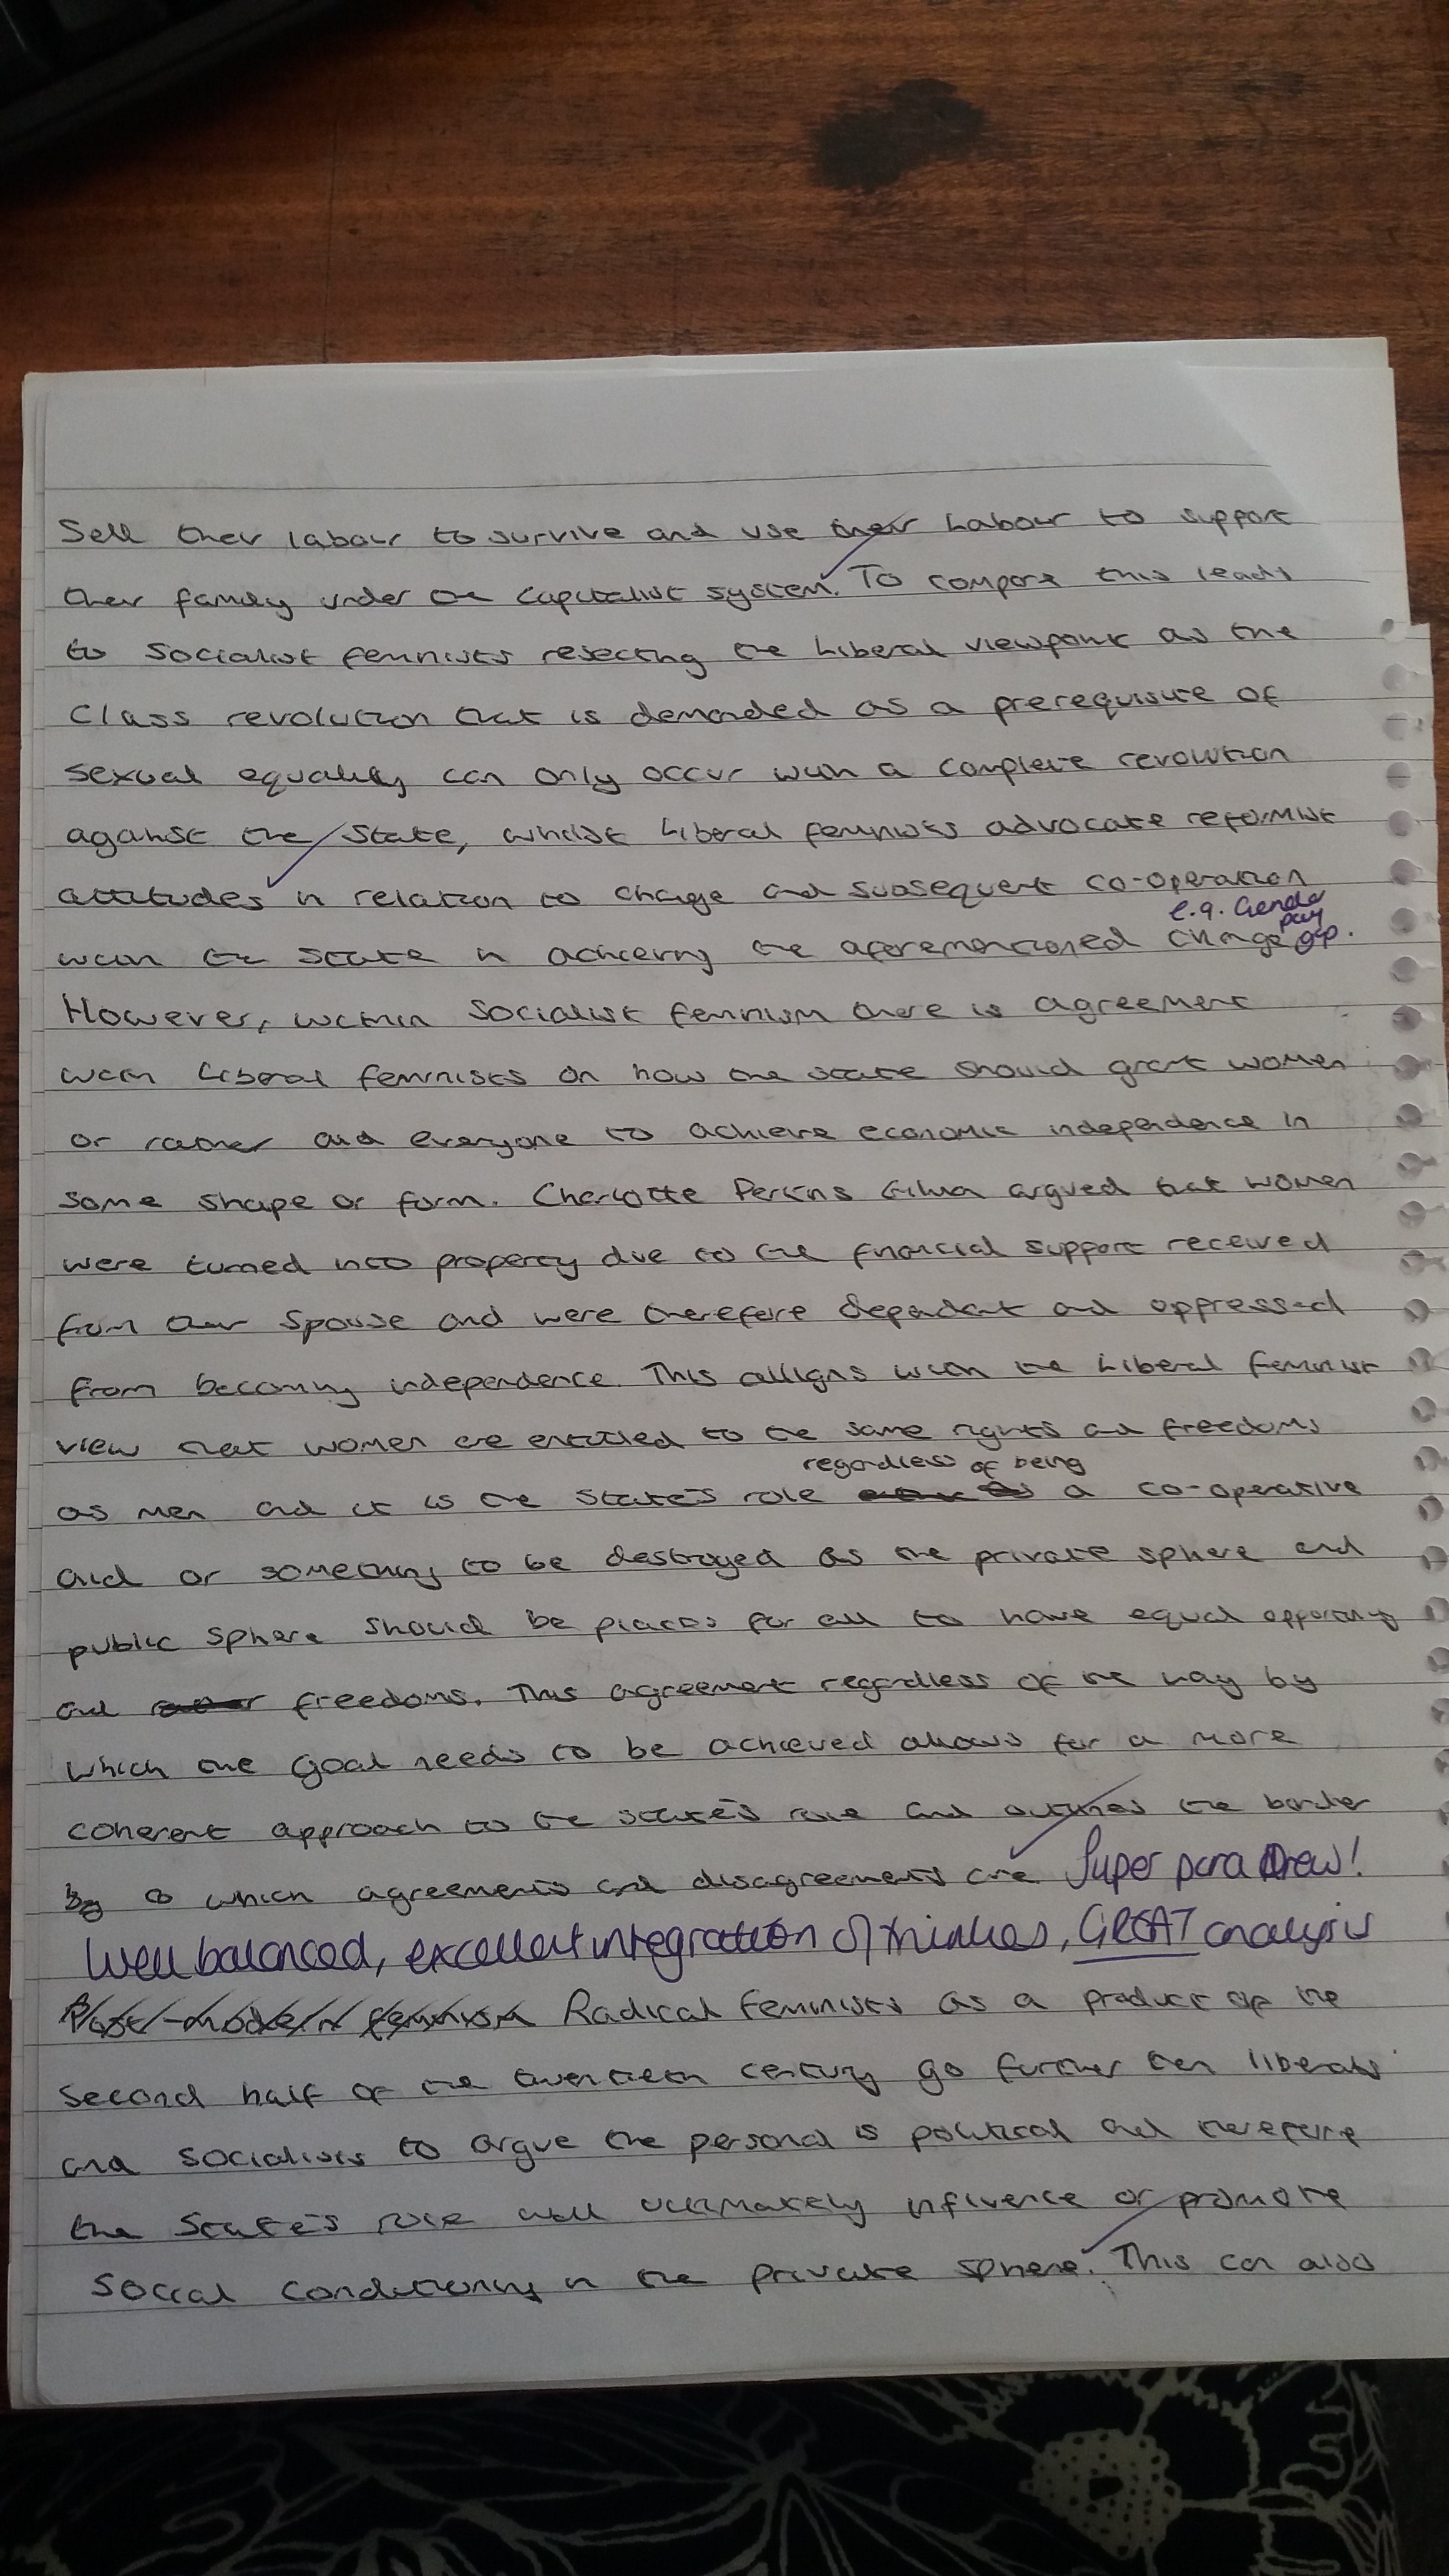 Sell their labour to survive and use their labour to support
their family under the capitalist system. To compare this leads
to socialist feminists rejecting the liberal viewpoint as the
class revolution that is demanded as a prerequisite of
sexual equality can only occur with a complete revolution
against the state, whilst liberal feminists advocate reformist
attitudes in relation to change and subsequent co-operation
e.g. Gender pay gap.
with the state in achieving the aforementioned change
However, within socialist feminism there is agreement
with liberal feminists on how the state should grant women
or rather aid everyone to achieve economic independence in
some shape or form. Charlotte Perkins Gilman argued that women
were turned into property due to the financial support received
from their spouse and were therefore dependent and oppressed
from becoming independence. This alligns with the liberal feminist
view that women are entitled to the same rights and freedoms
regardless of being
as men and it is the state's role a co-operative
aid or something to be destroyed as the private sphere and
public sphere should be places for all to have equal opportunity
and freedoms. This agreement regardless of the way by
which the goal needs to be achieved allows for a more
coherent approach to the state's role and outlines the border
by which agreements and disagreements are Super para Drew!
Well balanced, excellent integration of thinkers, GREAT analysis
Post-modern feminism Radical feminists as a product of the
second half of the twentieth century go further then liberals
and socialists to argue the personal is political and therefore
the state's role will ultimately influence or promote
social conditioning in the private sphere. This can also